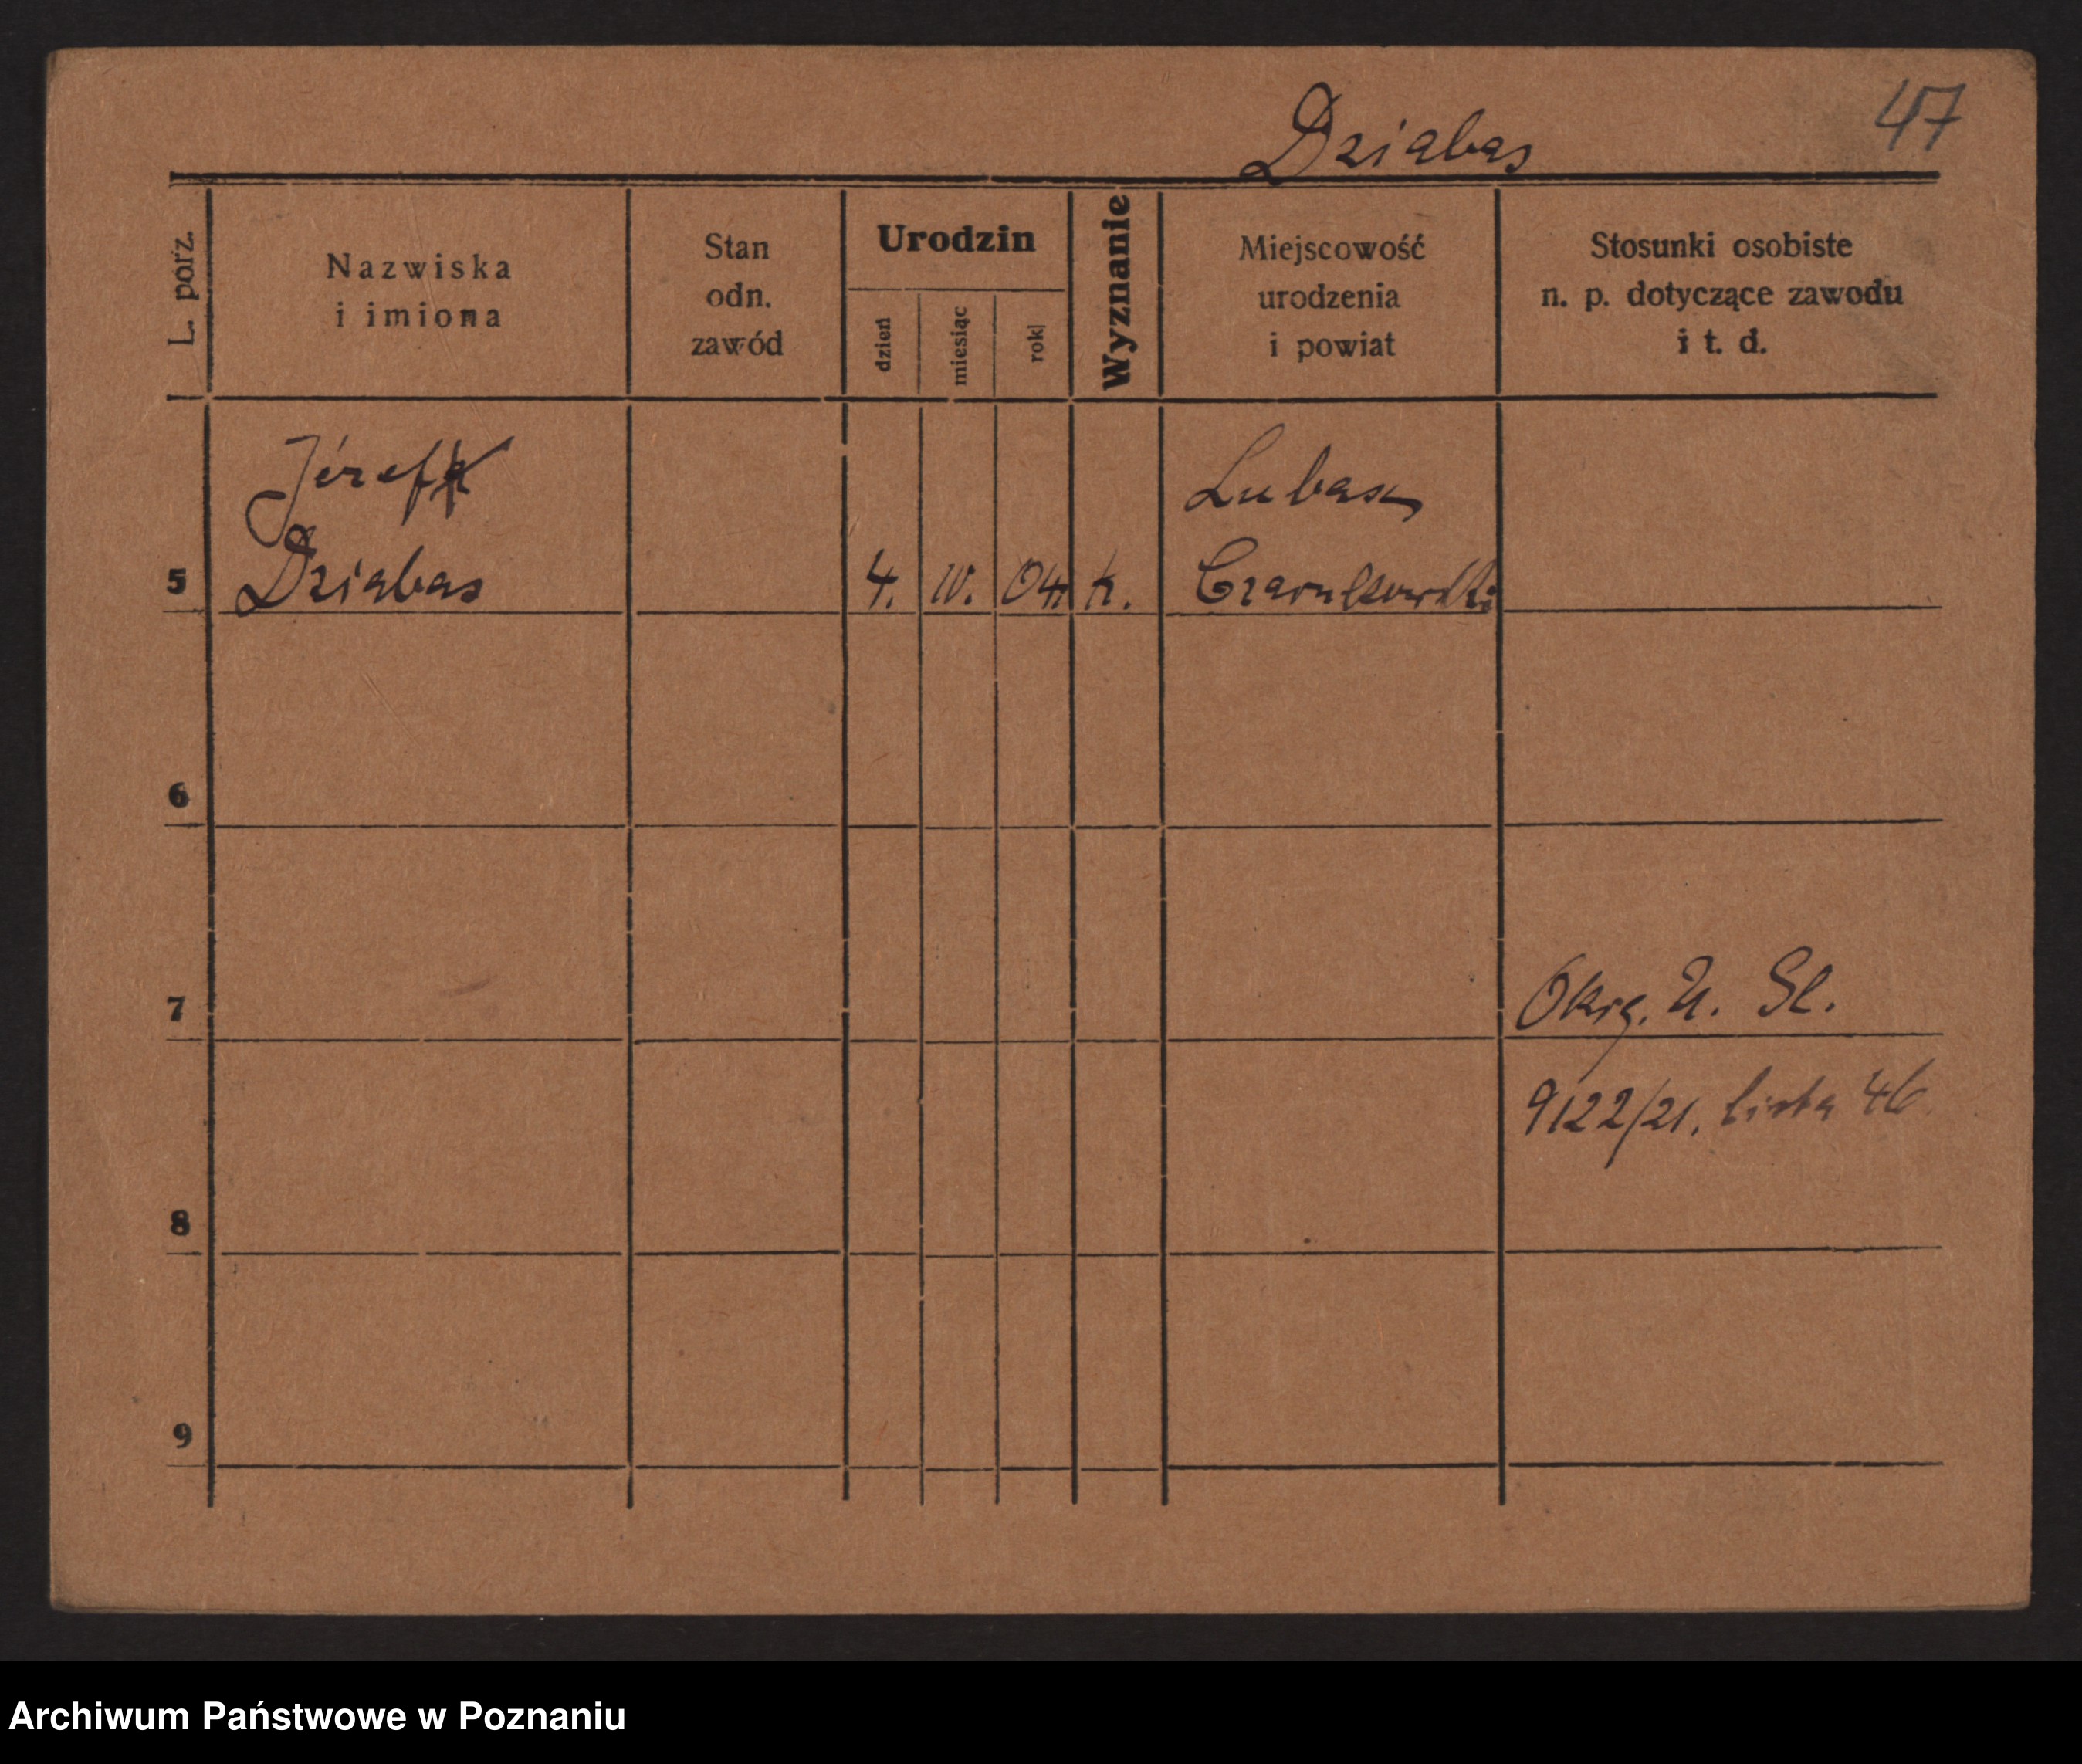 47
Dziabas
L. porz.
Nazwiska
i imiona
Stan
odn.
zawód
Urodzin
dzień
miesiąc
rok
Wyznanie
Miejscowość
urodzenia
i powiat
Stosunki osobiste
n. p. dotyczące zawodu
i t. d.
Józef
Lubasz
5 Dziabas 4. IV. 04. k. Czarnkowski
6
7 Okrg. U. Sl.
9122/21. lista 46
8
9
Archiwum Państwowe w Poznaniu